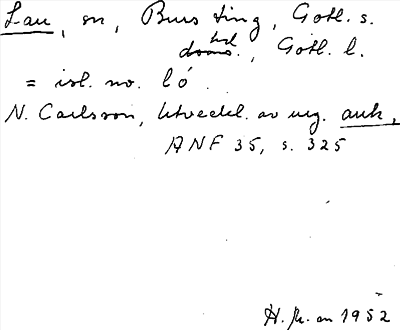 Lau, sn, Burs ting, Gotl. s.
hd., Gotl. l.
= isl. no. ló.
N. Carlsson, Utveckl. av urg. auh,
ANF 35, s. 325
1952